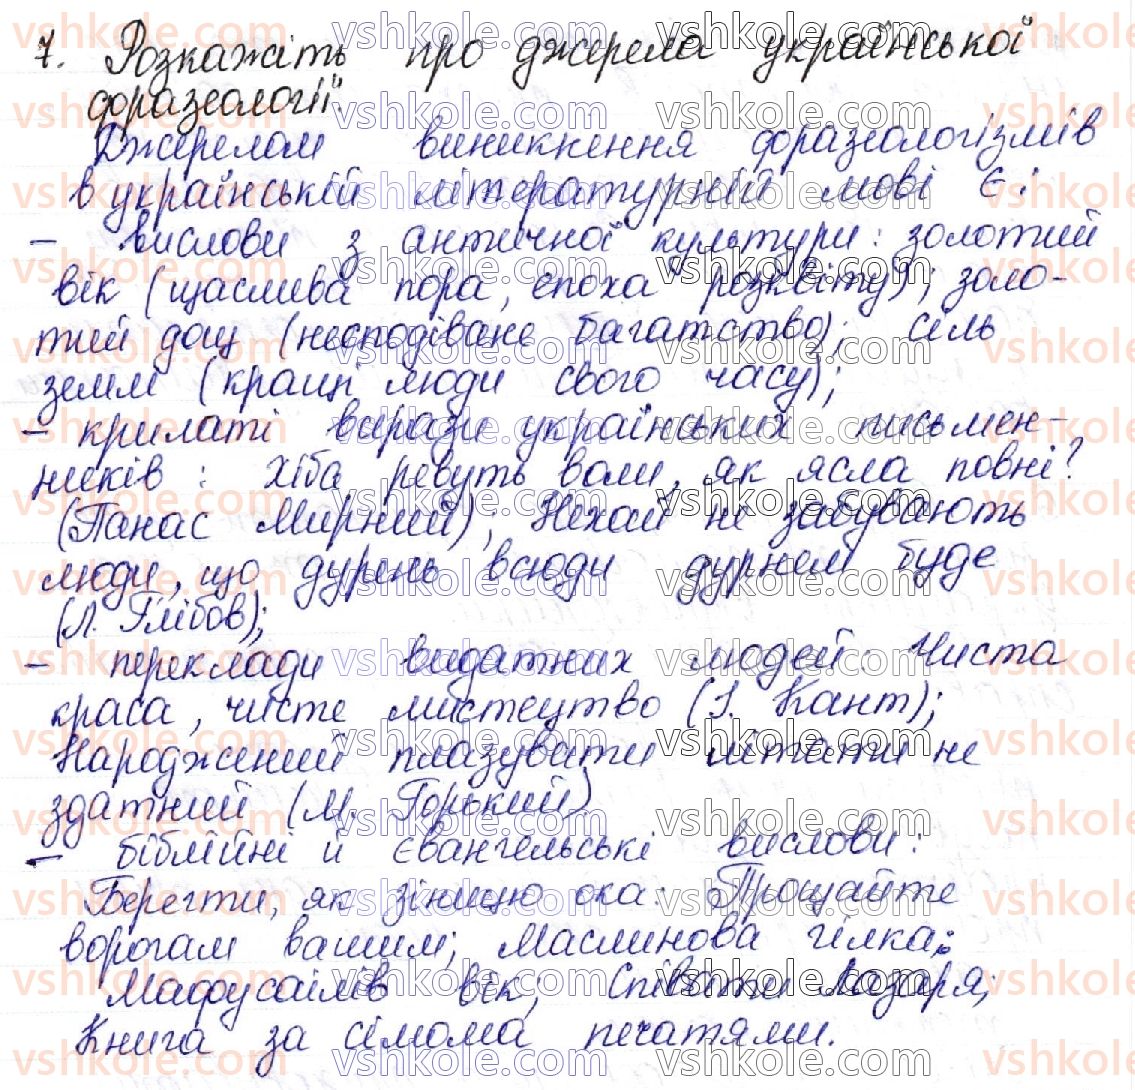 7. Розкажіть про джерела української
фразеології.
Джерелом виникнення фразеологізмів
в українській літературній мові є:
– вислови з античної культури: золотий
вік (щаслива пора, епоха розквіту); золо-
тий дощ (несподіване багатство); сіль
землі (кращі люди свого часу);
– крилаті вирази українських письмен-
ників: Хіба ревуть воли, як ясла повні?
(Панас Мирний); Нехай не забувають
люди, що дурень всюди дурнем буде
(Л. Глібов);
– переклади видатних людей: Чиста
краса, чисте мистецтво (І. Кант);
Народжений плазувати літати не
здатний (М. Горький).
– біблійні й євангельські вислови:
Берегти, як зіницю ока: Прощайте
ворогам вашим; Маслинова гілка:
Мафусаїлів вік; Співати Лазаря;
Книга за сімома печатями.
vshkole.com